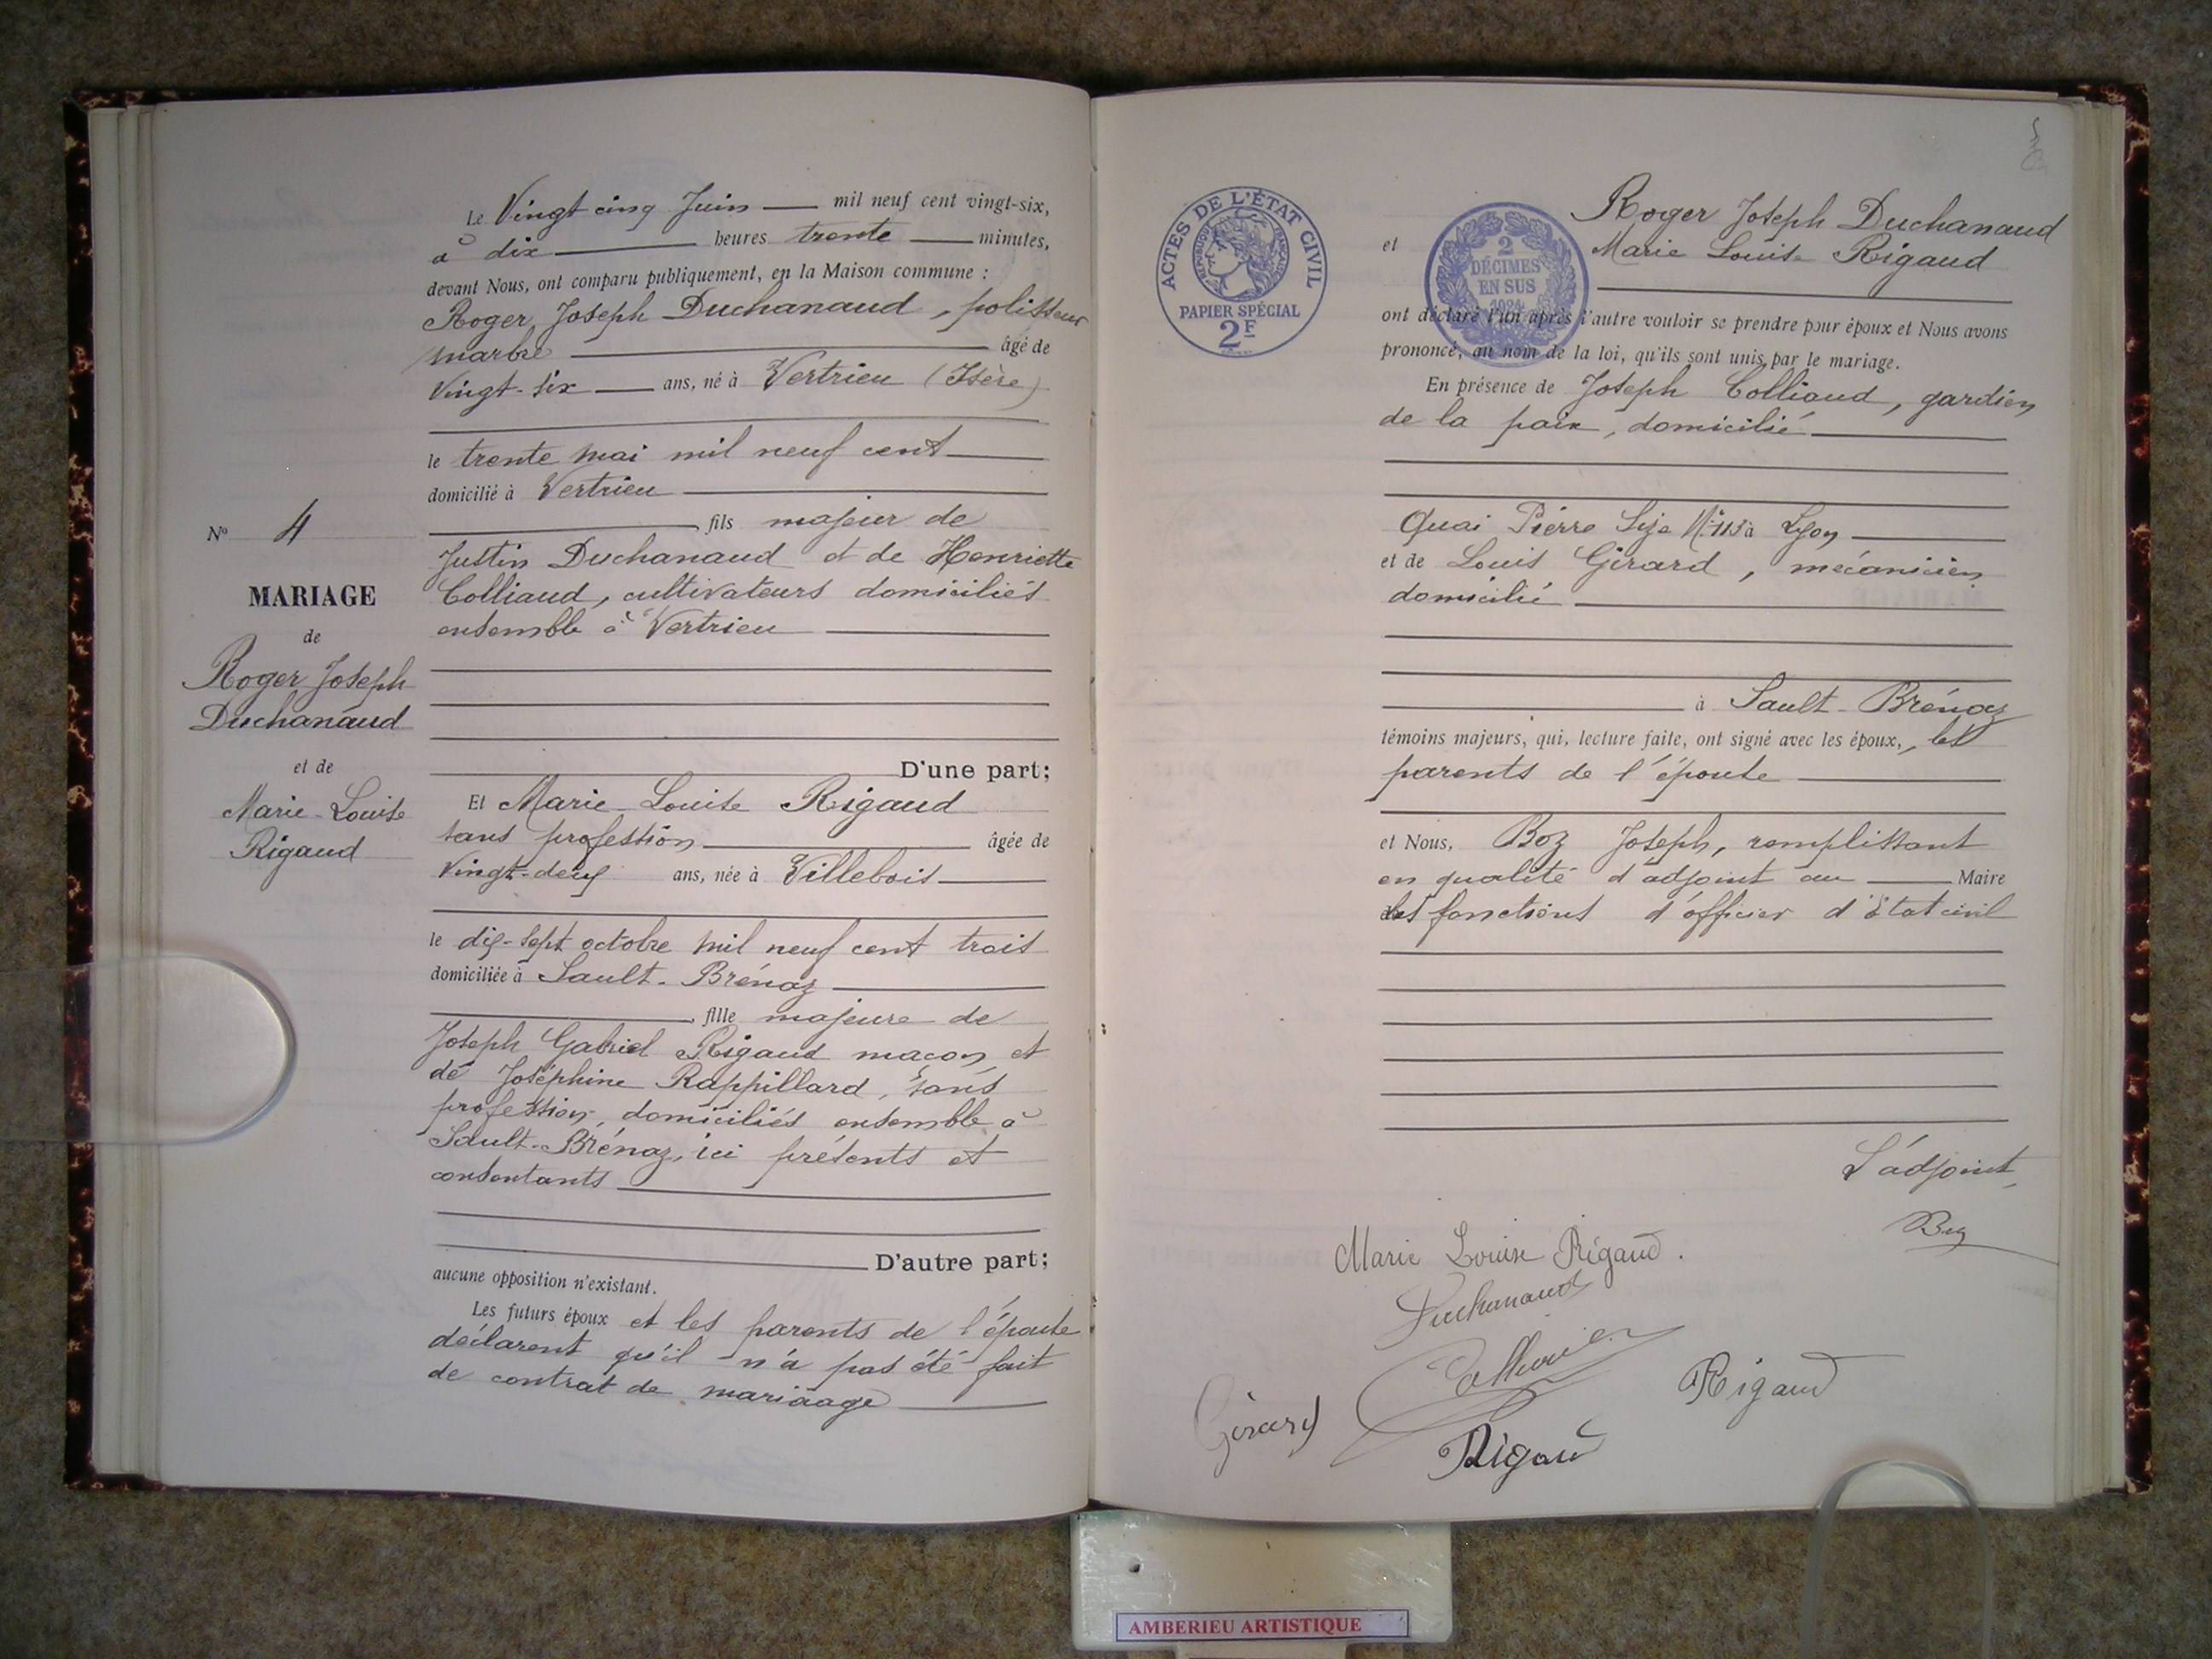 Le Vingt cinq Juin mil neuf cent vingt-six,
à dix heures trente minutes,
devant Nous, ont comparu publiquement, en la Maison commune :
Roger Joseph Duchanaud, polisseur
marbre âgé de
Vingt-six ans, né à Vertrieu (Isère)
le trente mai mil neuf cent
domicilié à Vertrieu
, fils majeur de
Justin Duchanaud et de Henriette
Colliaud, cultivateurs domiciliés
ensemble à Vertrieu
D'une part;
Et Marie-Louise Rigaud
sans profession âgée de
Vingt-deux ans, née à Villebois
le dix-sept octobre mil neuf cent trois
domiciliée à Sault-Brénaz
, fille majeure de
Joseph Gabriel Rigaud maçon et
de Joséphine Rappillard, sans
profession, domiciliés ensemble à
Sault-Brénaz, ici présents et
consentants
D'autre part;
aucune opposition n'existant.
Les futurs époux et les parents de l'épouse
déclarent qu'il n'a pas été fait
de contrat de mariaage
N° 4
MARIAGE
de
Roger Joseph
Duchanaud
et de
Marie-Louise
Rigaud
ACTES DE L'ÉTAT CIVIL
RÉPUBLIQUE FRANÇAISE
PAPIER SPÉCIAL
2F
2
DÉCIMES
EN SUS
1924
Roger Joseph Duchanaud
et Marie Louise Rigaud
ont déclaré l'un après l'autre vouloir se prendre pour époux et Nous avons
prononcé, au nom de la loi, qu'ils sont unis par le mariage.
En présence de Joseph Colliaud, gardien
de la paix, domicilié
Quai Pierre Size N° 113 à Lyon
et de Louis Girard, mécanicien
domicilié
à Sault-Brénaz
témoins majeurs, qui, lecture faite, ont signé avec les époux, les
parents de l'épouse
et Nous, Boz Joseph, remplissant
en qualité d'adjoint au Maire
les fonctions d'officier d'état civil
L'adjoint,
Boz
Marie Louise Rigaud.
Duchanaud
Girard
Rigaud
Rigaud
AMBERIEU ARTISTIQUE